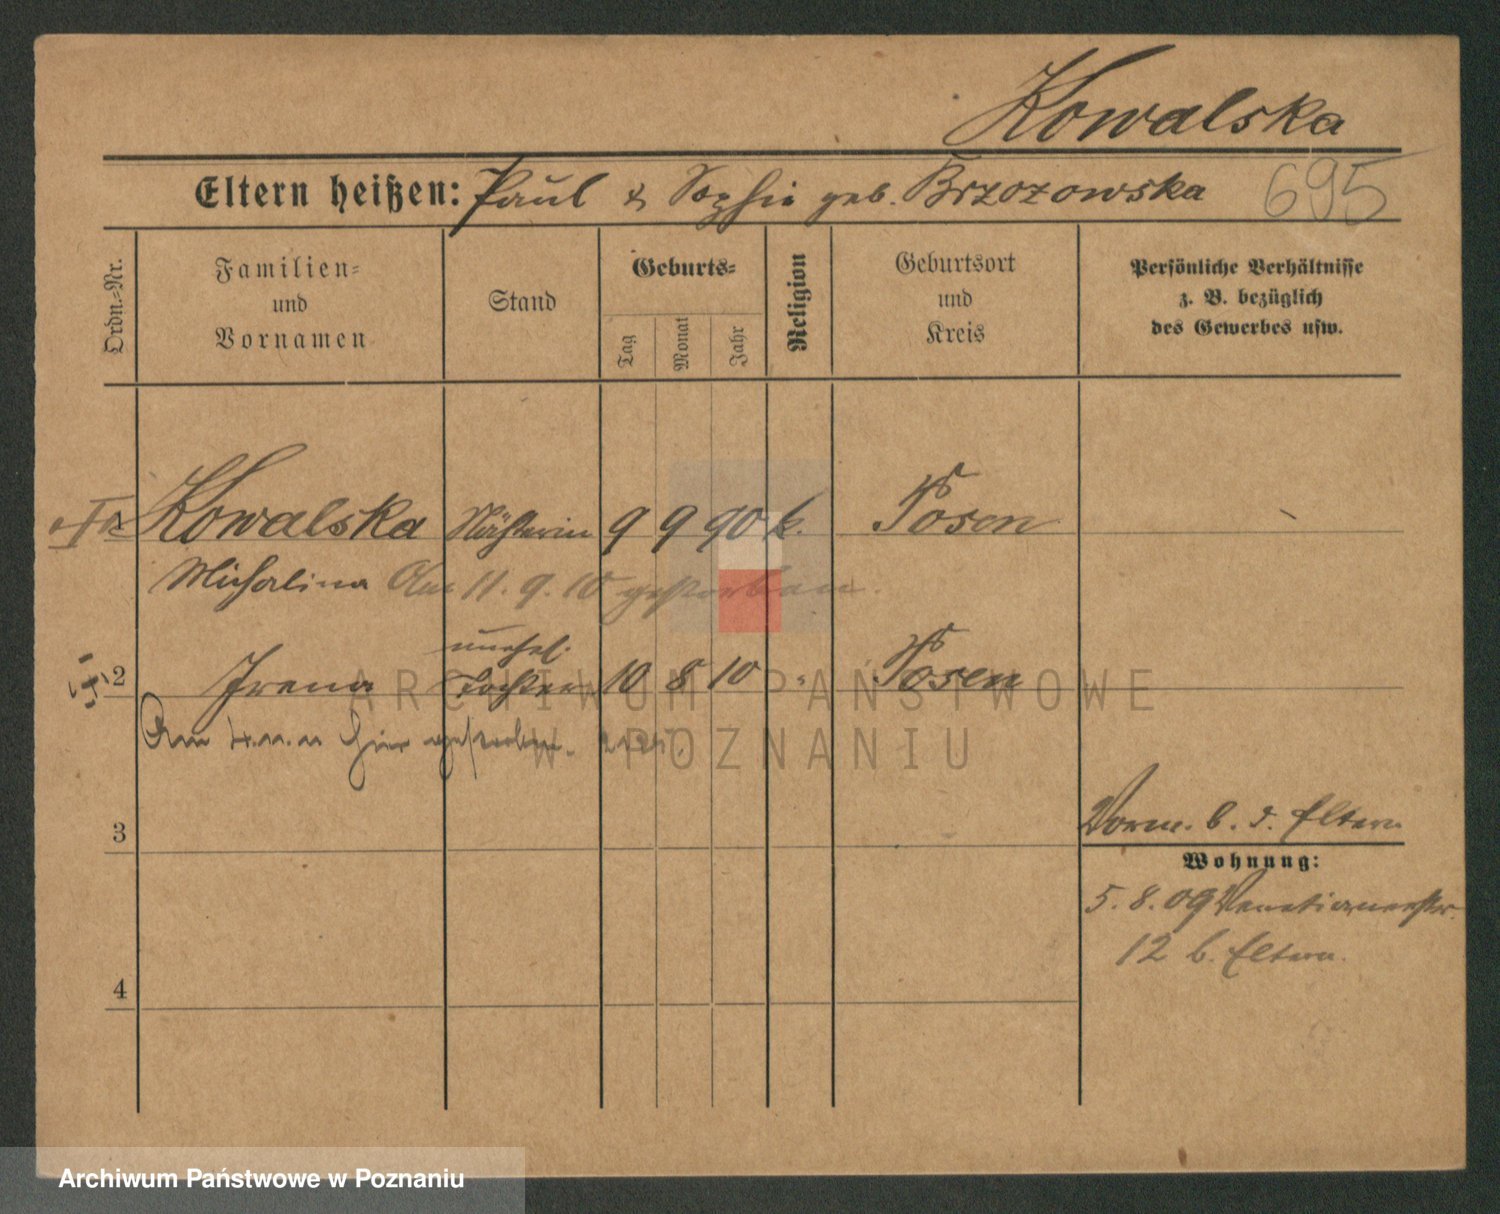 Kowalska
Eltern heißen: Paul & Sophie geb. Brzozowska 695
Ordn.=Nr.
Familien=
und
Vornamen
Stand
Geburts=
Tag
Monat
Jahr
Religion
Geburtsort
und
Kreis
Persönliche Verhältnisse
z. B. bezüglich
des Gewerbes usw.
Kowalska Näherin 9 9 90 k. Posen
Michalina Am 11. 9. 10 gestorben.
unehel.
2 Irena Tochter 10 8 10 " Posen
Am 4. 11. 11 hier gestorben.
3
Vorm. b. d. Eltern
Wohnung:
5. 8. 09 Venetianerstr.
12 b. Eltern.
4
ARCHIWUM PAŃSTWOWE
W POZNANIU
Archiwum Państwowe w Poznaniu